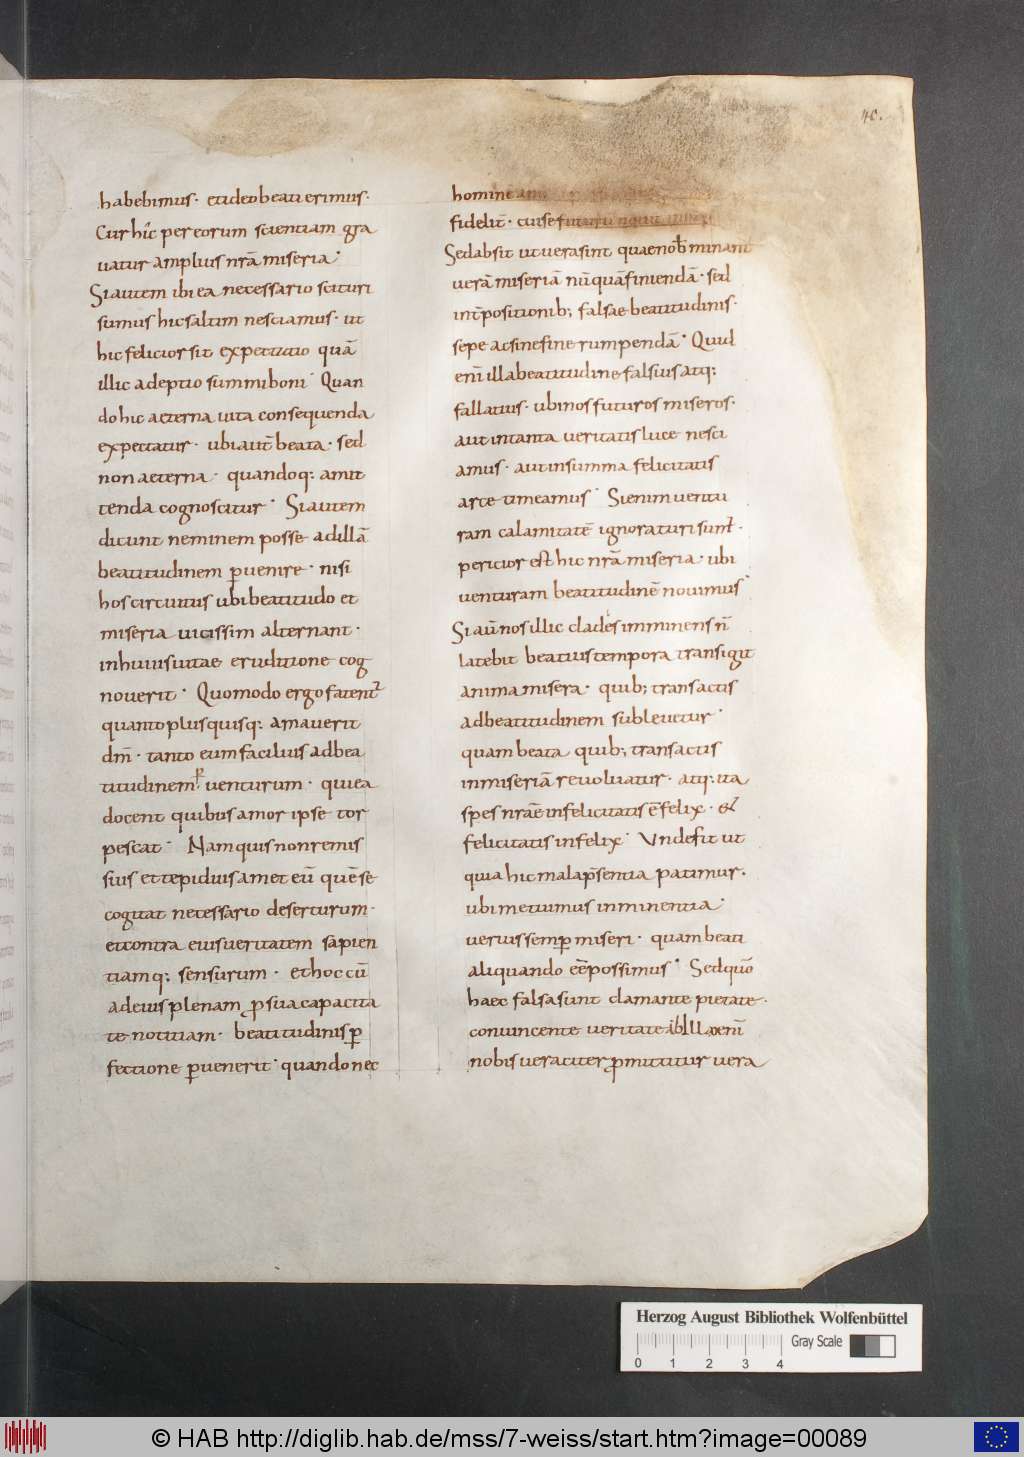 40.
habebimus· et ideo beati erimus·
Cur hic per eorum scientiam gra
uatur amplius nrā miseria·
Si autem ibi ea necessario scituri
sumus hic saltim nesciamus· ut
hic felicior sit expectatio quā
illic adeptio summi boni· Quan
do hic aeterna uita consequenda
expectatur· ubi aut̄ beata· sed
non aeterna· quandoq; amit
tenda cognoscitur· Si autem
dicunt neminem posse ad illā
beatitudinem ꝑuenire· nisi
hos circuitus ubi beatitudo et
miseria uicissim alternant·
in huius uitae eruditione cog
nouerit· Quomodo ergo fatent᷑
quanto plus quisq; amauerit
dm̄· tanto eum facilius ad bea
titudinem ꝑuenturum· qui ea
docent quibus amor ipse tor
pescat· Nam quis non remis
sius et tepidius amet eū quē se
cogitat necessario deserturum·
et contra eius ueritatem sapien
tiamq; sensurum· et hoc cū
ad eius plenam ꝓ sua capacita
te notitiam· beatitudinis ꝑ
fectione ꝑuenerit· quando nec
homine am
fidelit̄· cui se futurū nouit inimi
Sed absit ut uera sint quae nob̄ minant᷑
uerā miseriā nūquā finiendā· sed
int̄positionib; falsae beatitudinis·
sepe ac sine fine rumpendā· Quid
enī illa beatitudine falsius atq;
fallatius· ubi nos futuros miseros·
aut in tanta ueritatis luce nesci
amus· aut in summa felicitatis
arce timeamus· Si enim uentu
ram calamitatē ignoraturi sunt᷑·
pericior est hic nrā miseria· ubi
uenturam beatitudinē nouimus·
Si aū nos illic clades imminens ñ
latebit beatius tempora transigit
anima misera· quib; transactis
ad beatitudinem subleuetur·
quam beata quib; transactis
in miseriā reuoluatur· atq; ita
spes nrāe infelicitatis ē felix· et
felicitatis infelix· Unde fit ut
quia hic mala p̄sentia patimur·
ubi metuimus inminentia·
uerius semꝑ miseri· quam beati
aliquando eē possimus· Sed quō
haec falsa sunt clamante pietate·
conuincente ueritate·
nobis ueraciter ꝓmittitur uera
Herzog August Bibliothek Wolfenbüttel
0 1 2 3 4
Gray Scale
© HAB http://diglib.hab.de/mss/7-weiss/start.htm?image=00089